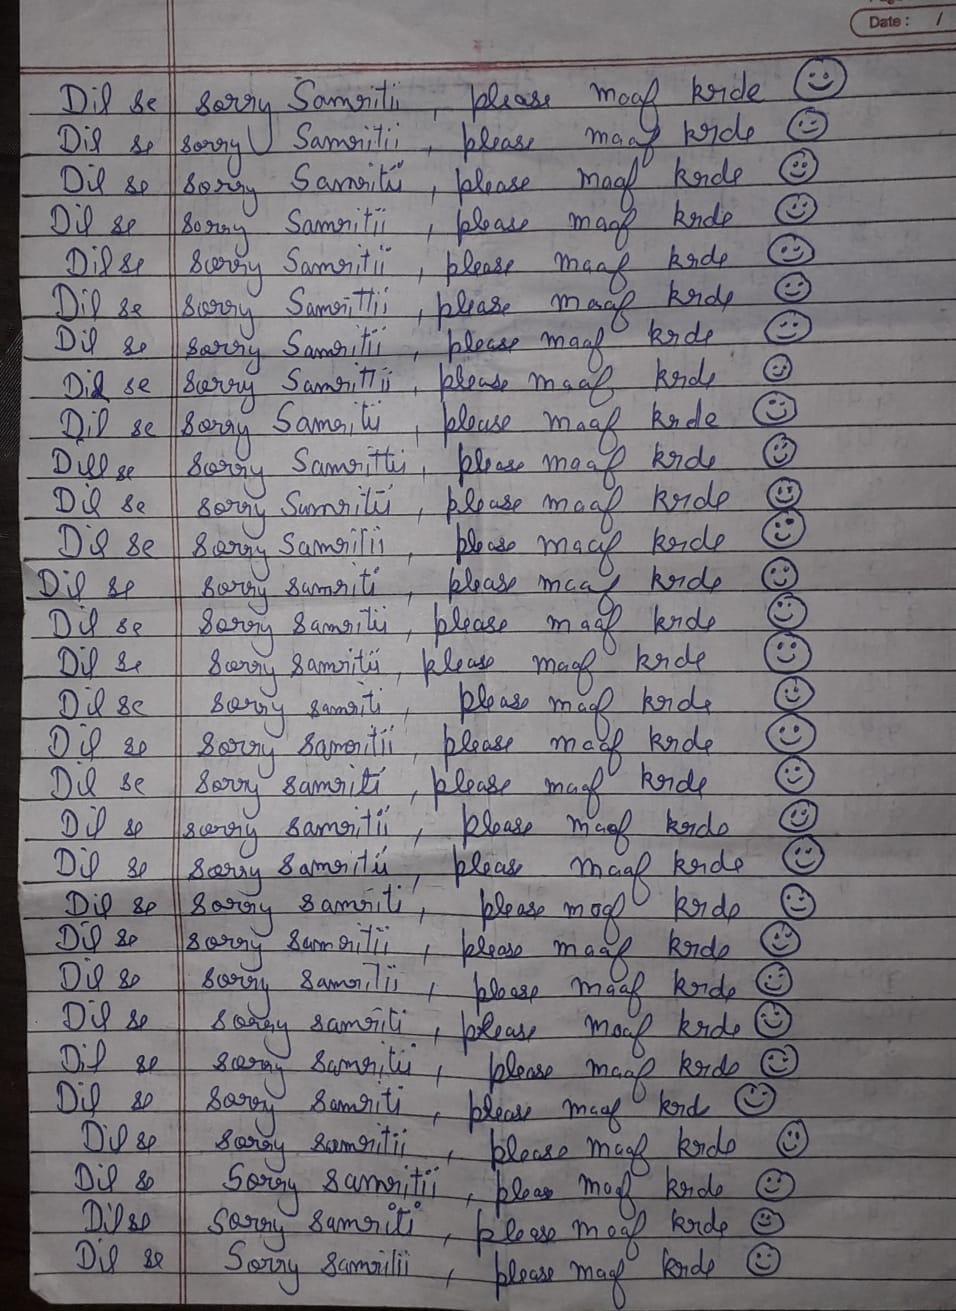 Date : /
Dil se sorry Samritii , please maaf krde ☺
Dil se sorry Samritii , please maaf krde ☺
Dil se sorry Samritii , please maaf krde ☺
Dil se sorry Samritii , please maaf krde ☺
Dil se sorry Samritii , please maaf krde ☺
Dil se sorry Samrittii , please maaf krde ☺
Dil se sorry Samritii , please maaf krde ☺
Dil se sorry Samrittii , please maaf krde ☺
Dil se sorry Samritii , please maaf krde ☺
Dill se sorry Samrittii , please maaf krde ☺
Dil se sorry Samritii , please maaf krde ☺
Dil se sorry Samritii , please maaf krde ☺
Dil se sorry samriti , please maaf krde ☺
Dil se sorry samritii , please maaf krde ☺
Dil se sorry samritii , please maaf krde ☺
Dil se sorry samriti , please maaf krde ☺
Dil se sorry samritii , please maaf krde ☺
Dil se sorry samriti , please maaf krde ☺
Dil se sorry samritii , please maaf krde ☺
Dil se sorry samritii , please maaf krde ☺
Dil se sorry samriti , please maaf krde ☺
Dil se sorry samritii , please maaf krde ☺
Dil se sorry samritii , please maaf krde ☺
Dil se sorry samriti , please maaf krde ☺
Dil se sorry samritii , please maaf krde ☺
Dil se sorry samriti , please maaf krd ☺
Dil se sorry samritii , please maaf krde ☺
Dil se Sorry samritii , pleas maaf krde ☺
Dil se sorry samriti , please maaf krde ☺
Dil se Sorry samritii , please maaf krde ☺